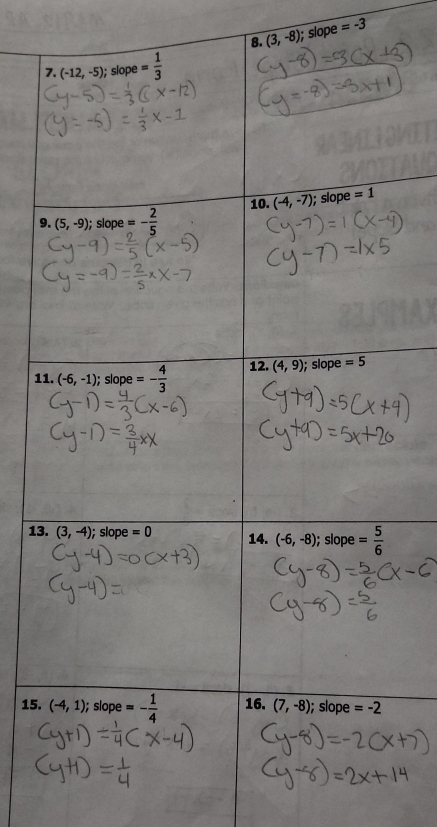 7. (-12, -5); slope = 1/3
(y-5) = 1/3 (x-12)
(y=-5) = 1/3 x-1
8. (3, -8); slope = -3
(y-8) = 3(x+3)
(y=-8) = 3x+1
9. (5, -9); slope = -2/5
(y-9) = 2/5 (x-5)
(y=-9) = 2/5 x x-7
10. (-4, -7); slope = 1
(y-7) = 1(x-4)
(y-7) = 1x5
11. (-6, -1); slope = -4/3
(y-1) = 4/3 (x-6)
(y-1) = 3/4 xx
12. (4, 9); slope = 5
(y+9) = 5(x+4)
(y+9) = 5x+20
13. (3, -4); slope = 0
(y-4) = 0(x+3)
(y-4) =
14. (-6, -8); slope = 5/6
(y-8) = 5/6 (x-6
(y-8) = 5/6
15. (-4, 1); slope = -1/4
(y+1) = 1/4 (x-4)
(y+1) = 1/4
16. (7, -8); slope = -2
(y-8) = -2(x+7)
(y-8) = 2x+14